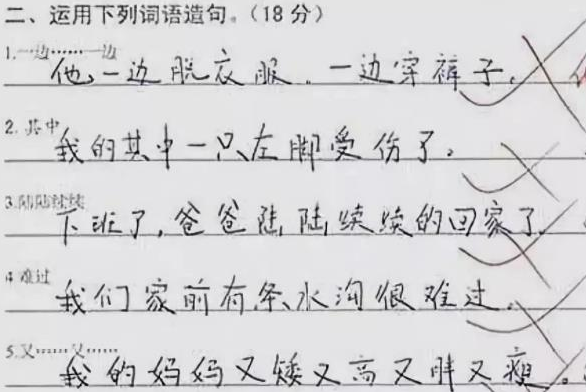 二、运用下列词语造句。(18分)
1.一边……一边
他一边脱衣服，一边穿裤子。
2.其中
我的其中一只左脚受伤了。
3.陆陆续续
下班了,爸爸陆陆续续的回家了。
4难过
我们家前有条水沟很难过。
5.又……又……
我的妈妈又矮又高又胖又瘦。